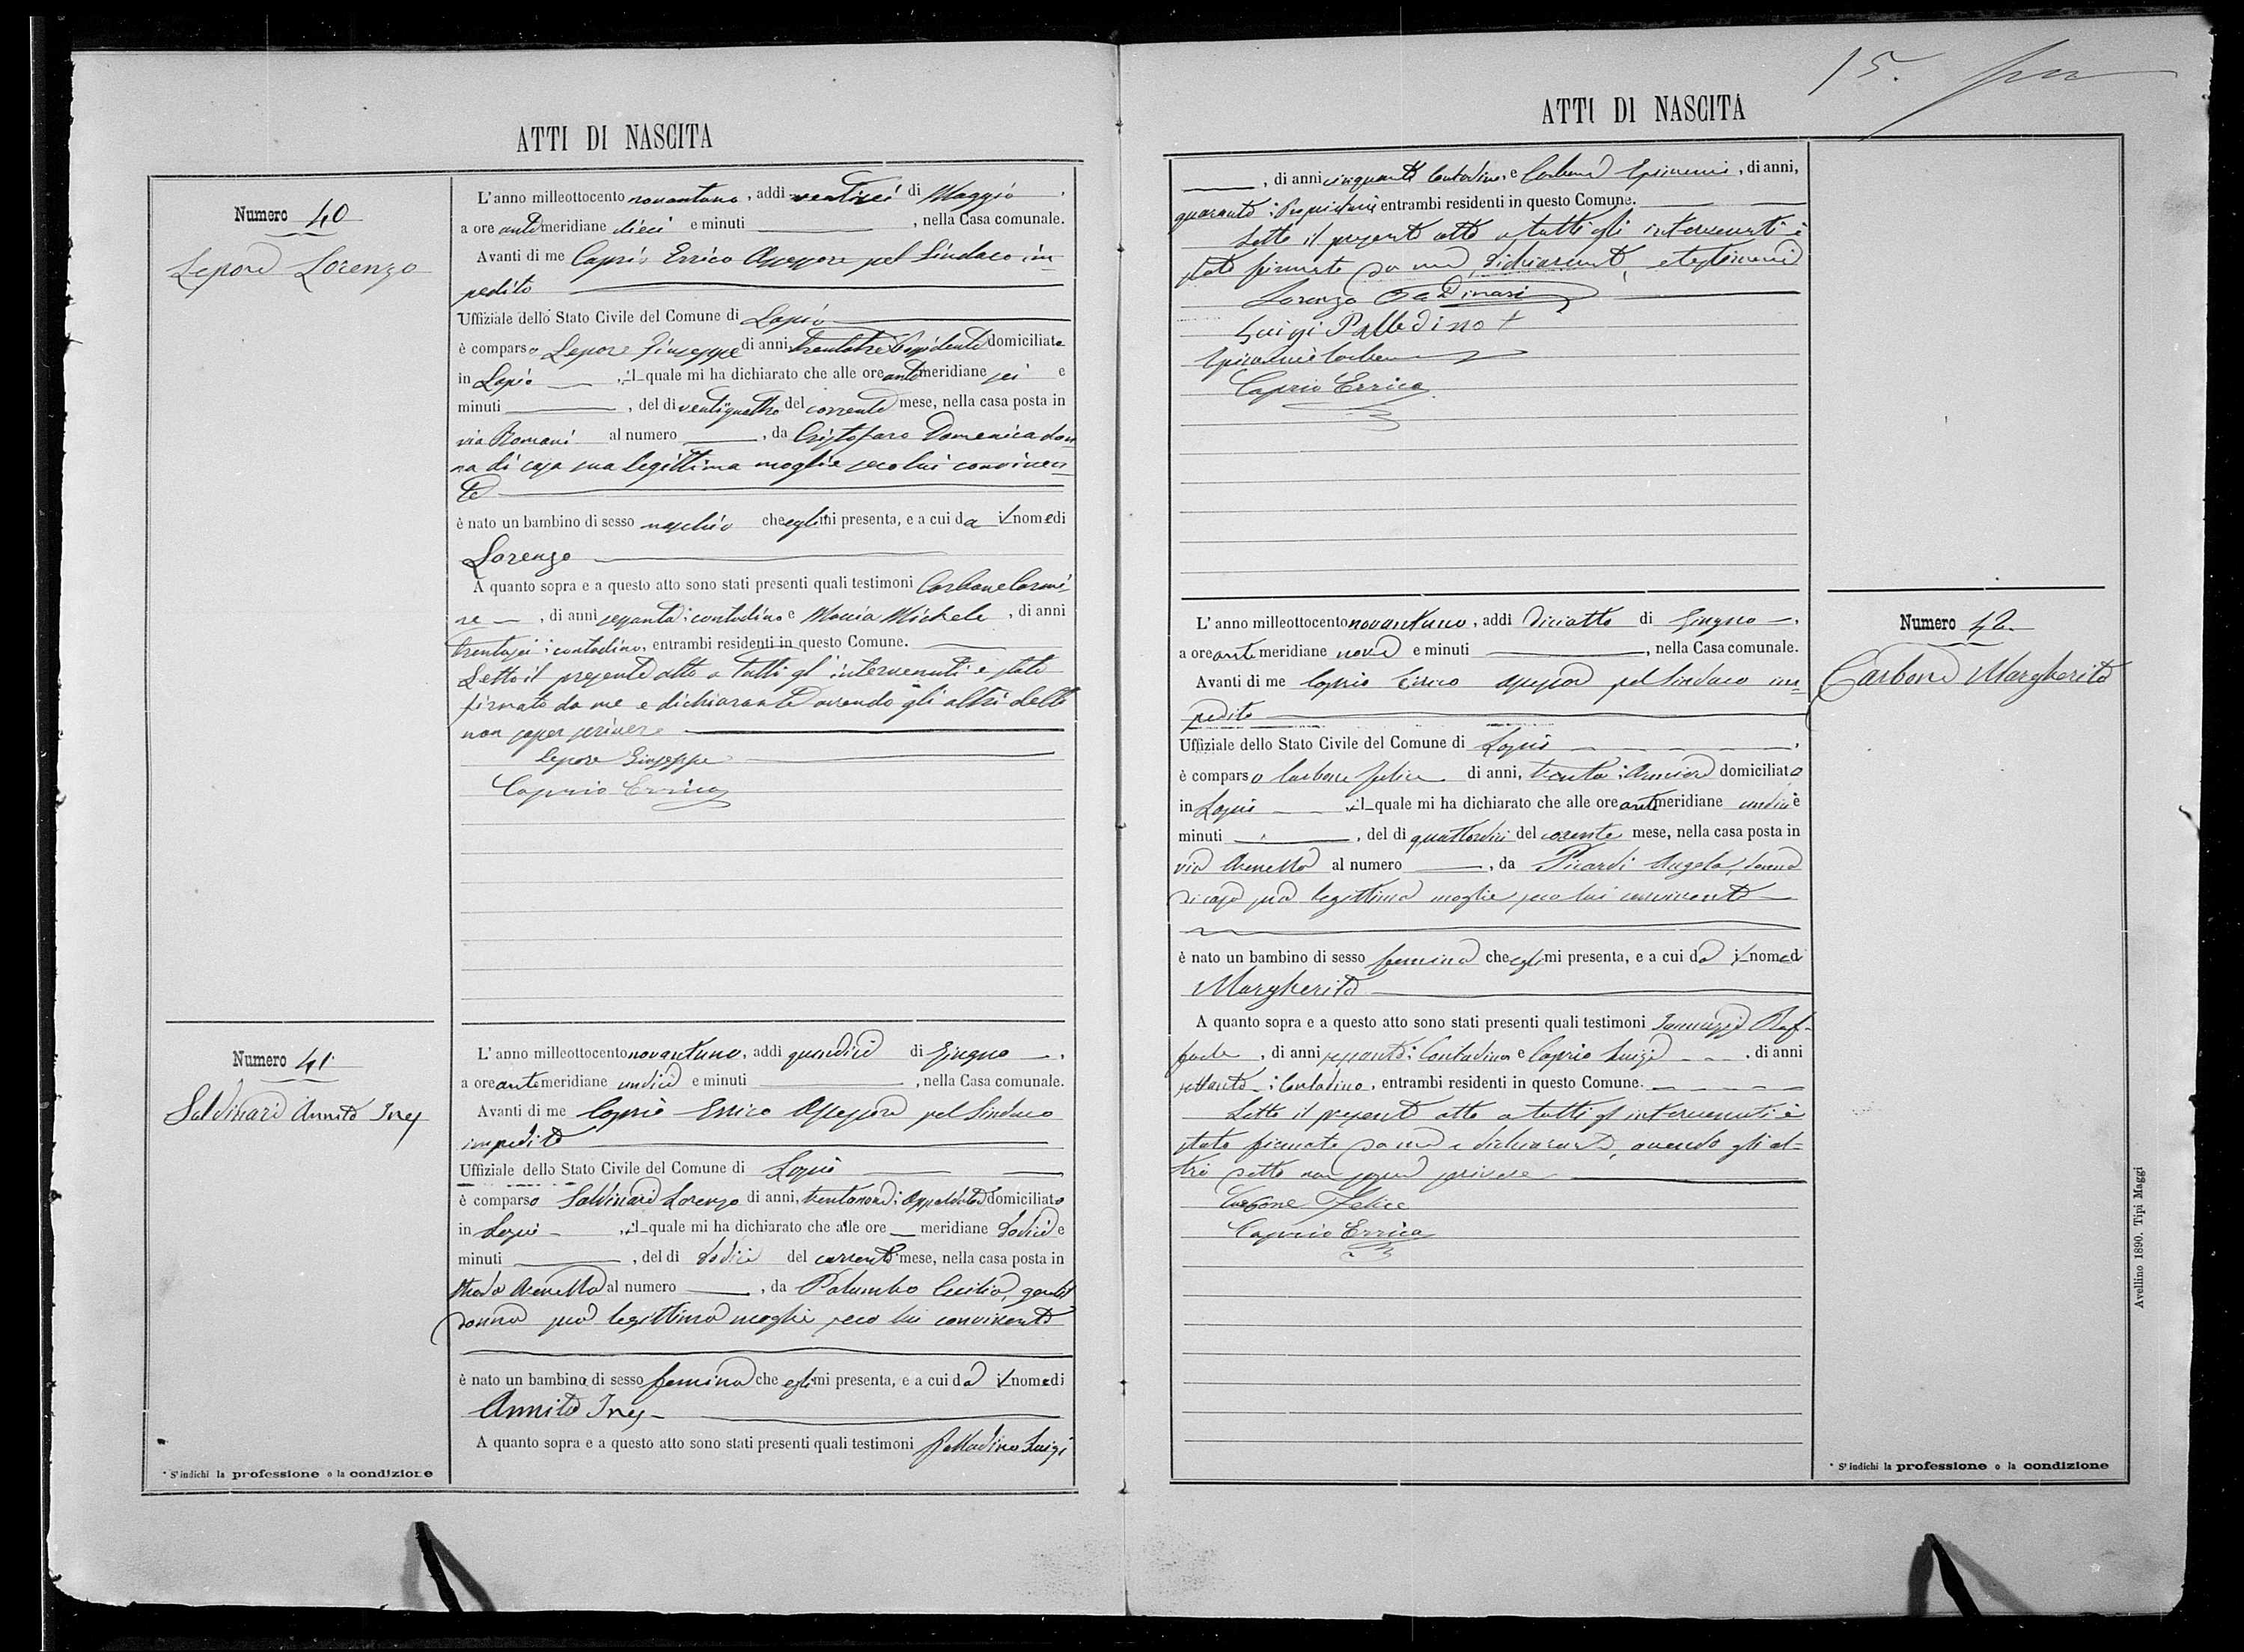 ATTI DI NASCITA
Numero 40
Lepore Lorenzo
L'anno milleottocento novantuno, addi ventisei di Maggio,
a ore antimeridiane dieci e minuti , nella Casa comunale.
Avanti di me Caprio Errico Assessore pel Sindaco im-
pedito
Uffiziale dello Stato Civile del Comune di Lapio
è comparso Lepore Giuseppe di anni, trentatre domiciliato
in Lapio , il quale mi ha dichiarato che alle ore antimeridiane sei e
minuti , del di ventiquattro del corrente mese, nella casa posta in
via Romani al numero , da Cristofaro Domenica don
na di casa sua legittima moglie seco lui conviven-
te
è nato un bambino di sesso maschio che egli mi presenta, e a cui da il nome di
Lorenzo
A quanto sopra e a questo atto sono stati presenti quali testimoni Carbone Carmi-
ne , di anni sessanta: contadino e Michele , di anni
trentasei: contadino, entrambi residenti in questo Comune.
Letto il presente atto a tutti gl' intervenuti è stato
firmato da me e dichiarante avendo gli altri detto
non saper scrivere
Lepore Giuseppe
Caprio Errico
Numero 41
Saldinari Annita Ines
L'anno milleottocento novantuno, addi quindici di Giugno,
a ore antimeridiane undici e minuti , nella Casa comunale.
Avanti di me Caprio Errico Assessore pel Sindaco
impedito
Uffiziale dello Stato Civile del Comune di Lapio
è comparso Saldinari Lorenzo di anni, trentanove: domiciliato
in Lapio , il quale mi ha dichiarato che alle ore meridiane dodici e
minuti , del di dodici del corrente mese, nella casa posta in
strada Arenella al numero , da Palumbo Cecilia, gentil
donna sua legittima moglie seco lui convivente
è nato un bambino di sesso femina che egli mi presenta, e a cui da il nome di
Annita Ines
A quanto sopra e a questo atto sono stati presenti quali testimoni Palladino Luigi
* S' indichi la professione o la condizione
15.
ATTI DI NASCITA
, di anni cinquanta contadino, e Carbone , di anni,
quaranta: Proprietario entrambi residenti in questo Comune.
Letto il presente atto a tutti gli intervenuti è
stato firmato da me, dichiarante, e testimoni
Lorenzo Saldinari
Luigi Palladino
Carbone
Caprio Errico
Numero 42
Carbone Margherita
L'anno milleottocento novantuno, addi diciotto di Giugno,
a ore antimeridiane nove e minuti , nella Casa comunale.
Avanti di me Caprio Errico Assessore pel Sindaco im-
pedito
Uffiziale dello Stato Civile del Comune di Lapio
è comparso Carbone Felice di anni, trenta: domiciliato
in Lapio , il quale mi ha dichiarato che alle ore antimeridiane undici e
minuti , del di quattordici del corrente mese, nella casa posta in
via Arenella al numero , da Picardi Angela, donna
di casa sua legittima moglie seco lui convivente
è nato un bambino di sesso femina che egli mi presenta, e a cui da il nome di
Margherita
A quanto sopra e a questo atto sono stati presenti quali testimoni Raf-
faele , di anni sessanta: Contadino e Caprio Luigi , di anni
settanta: Contadino, entrambi residenti in questo Comune.
Letto il presente atto a tutti gl' intervenuti è
stato firmato da me e dichiarante, avendo gli al-
tri detto non saper scrivere
Carbone Felice
Caprio Errico
* S' indichi la professione o la condizione
Avellino 1890. Tipi Maggi